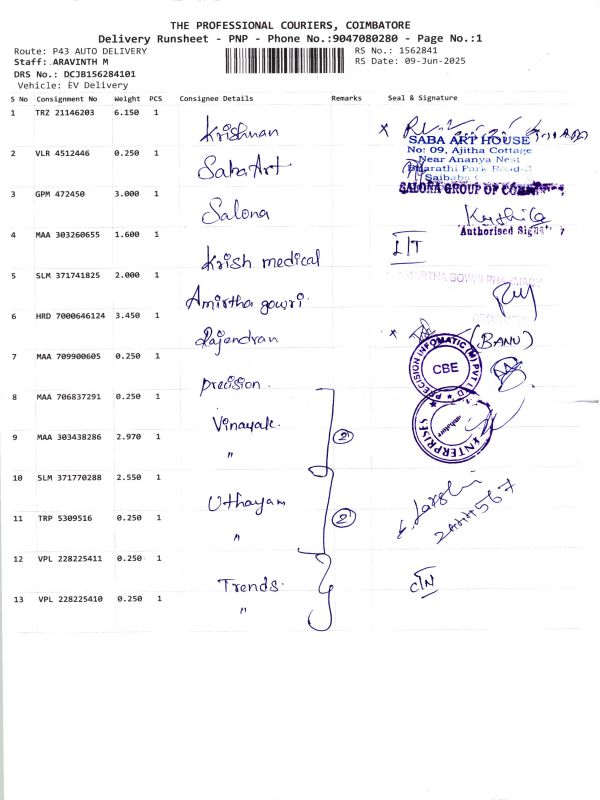 THE PROFESSIONAL COURIERS, COIMBATORE
Delivery Runsheet - PNP - Phone No.:9047080280 - Page No.:1
Route: P43 AUTO DELIVERY
RS No.: 1562841
Staff: ARAVINTH M
RS Date: 09-Jun-2025
DRS No.: DCJB156284101
Vehicle: EV Delivery
S No Consignment No Weight PCS Consignee Details Remarks Seal & Signature
1 TRZ 21146203 6.150 1 Krishnan x
SABA ART HOUSE
No: 09, Ajitha Cottage
Near Ananya Nest
Bharathi Park Road-
Saibaba
2 VLR 4512446 0.250 1 Saba Art
3 GPM 472450 3.000 1 Salona
SALONA GROUP OF
Authorised
4 MAA 303260655 1.600 1 Krish medical I/T
5 SLM 371741825 2.000 1 Amirtha gowri.
6 HRD 7000646124 3.450 1 Rajendran x (BANU)
7 MAA 709900605 0.250 1 precision.
PRECISION INFOMATIC (M) PVT LTD
CBE
8 MAA 706837291 0.250 1 Vinayak. 2
ENTERPRISES
9 MAA 303438286 2.970 1 "
10 SLM 371770288 2.550 1 Uthayam 2
11 TRP 5309516 0.250 1 "
12 VPL 228225411 0.250 1 Trends.
13 VPL 228225410 0.250 1 "